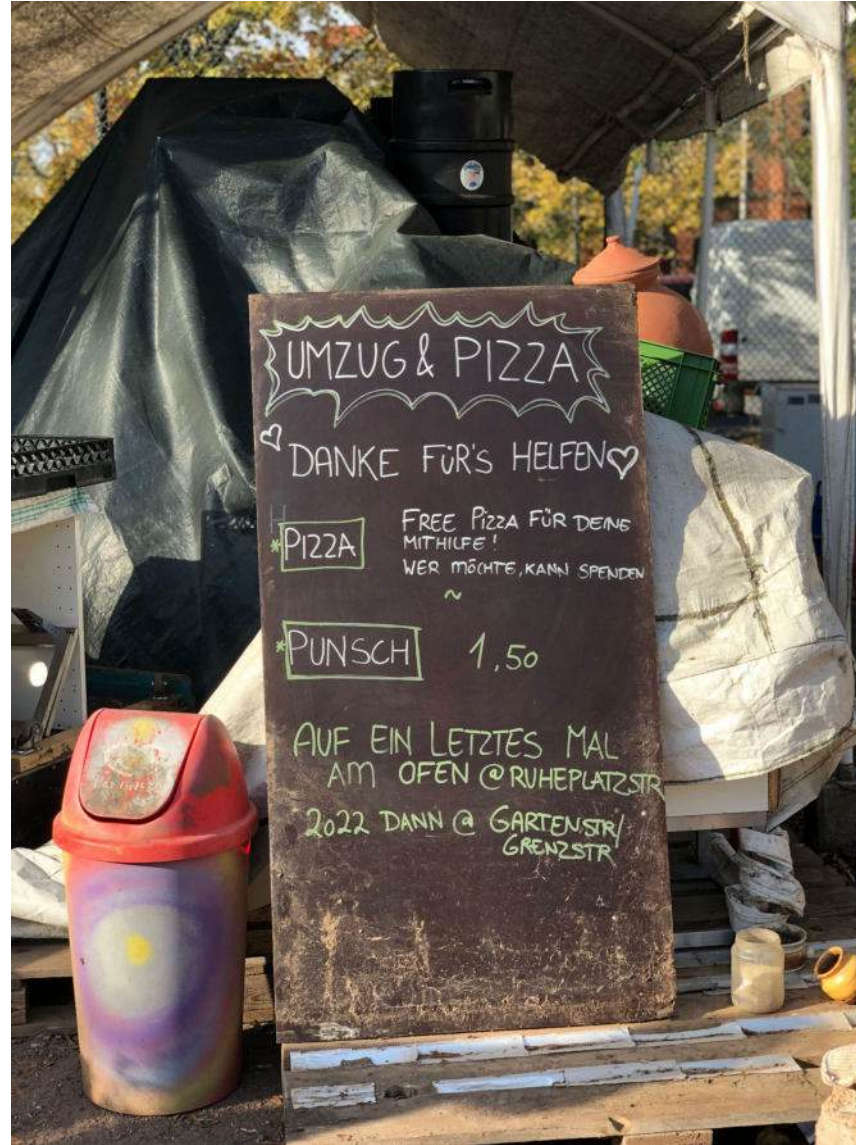 UMZUG & PIZZA
DANKE FÜR'S HELFEN
*PIZZA
FREE PIZZA FÜR DEINE
MITHILFE!
WER MÖCHTE, KANN SPENDEN
~
*PUNSCH 1,50
AUF EIN LETZTES MAL
AM OFEN @ RUHEPLATZSTR
2022 DANN @ GARTENSTR/
GRENZSTR